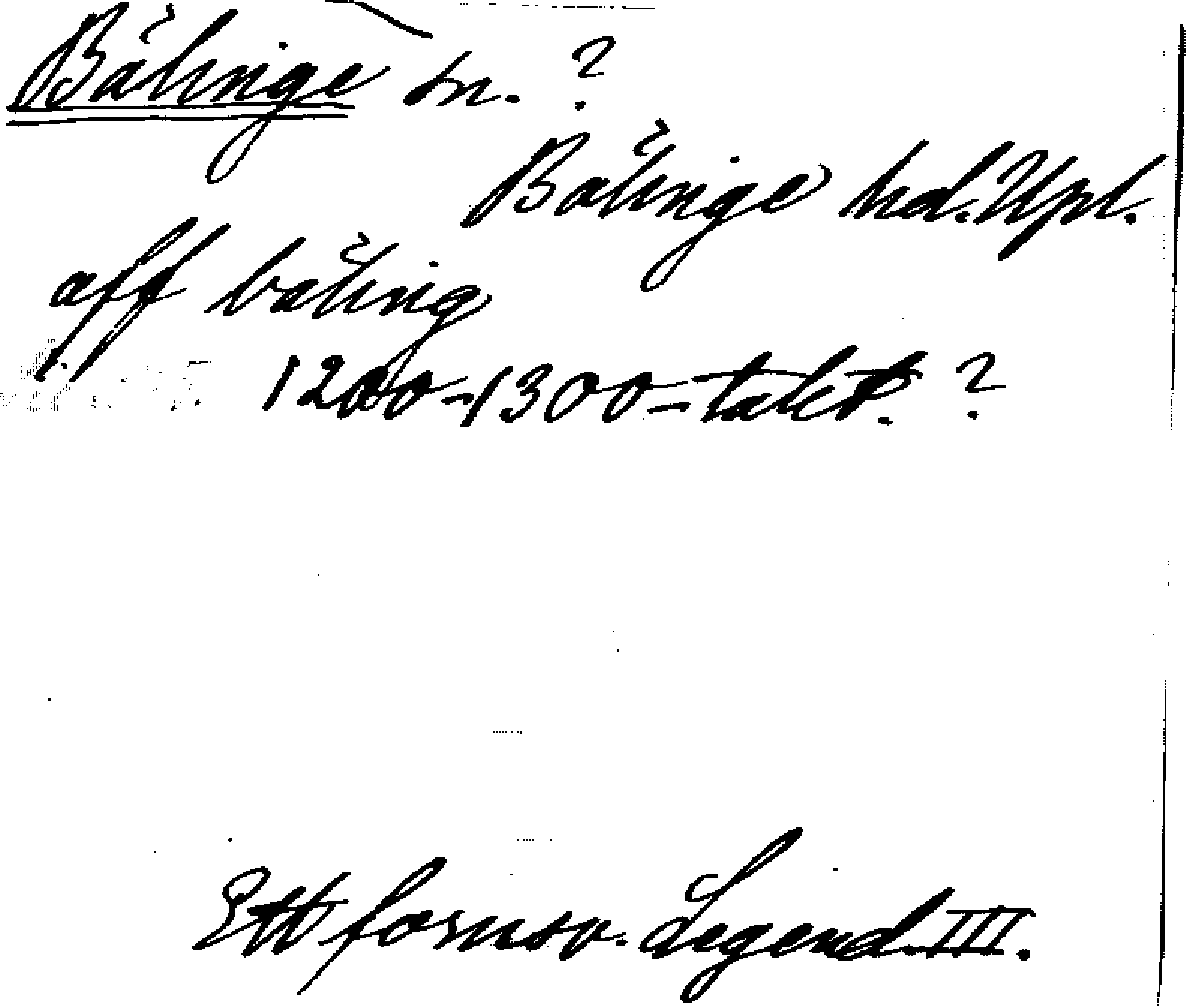 Bälinge sn. ?
Bälinge hd. Upl.
aff bäling
1200-1300-talet. ?
Ett fornsv. Legend. III.